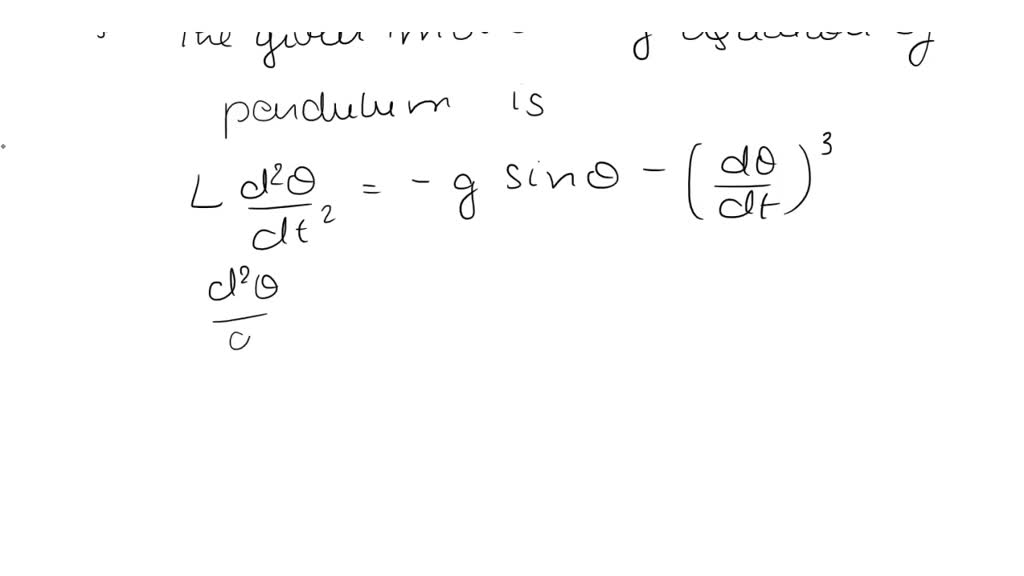 The given
pendulum is
L d²θ/dt² = - g sinθ - (dθ/dt)³
d²θ